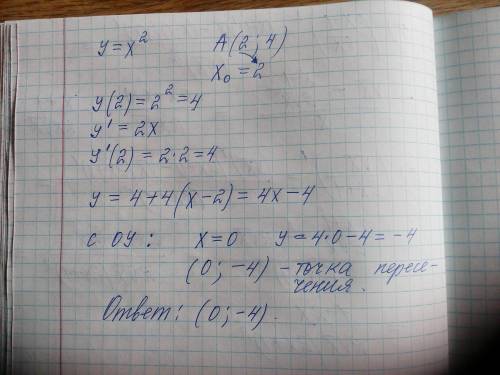 y = x² A(2; 4)
x₀ = 2
y(2) = 2² = 4
y' = 2x
y'(2) = 2·2 = 4
y = 4 + 4(x − 2) = 4x − 4
с ОУ: x = 0 y = 4·0 − 4 = −4
(0; −4) – точка пересе-
чения.
Ответ: (0; −4).